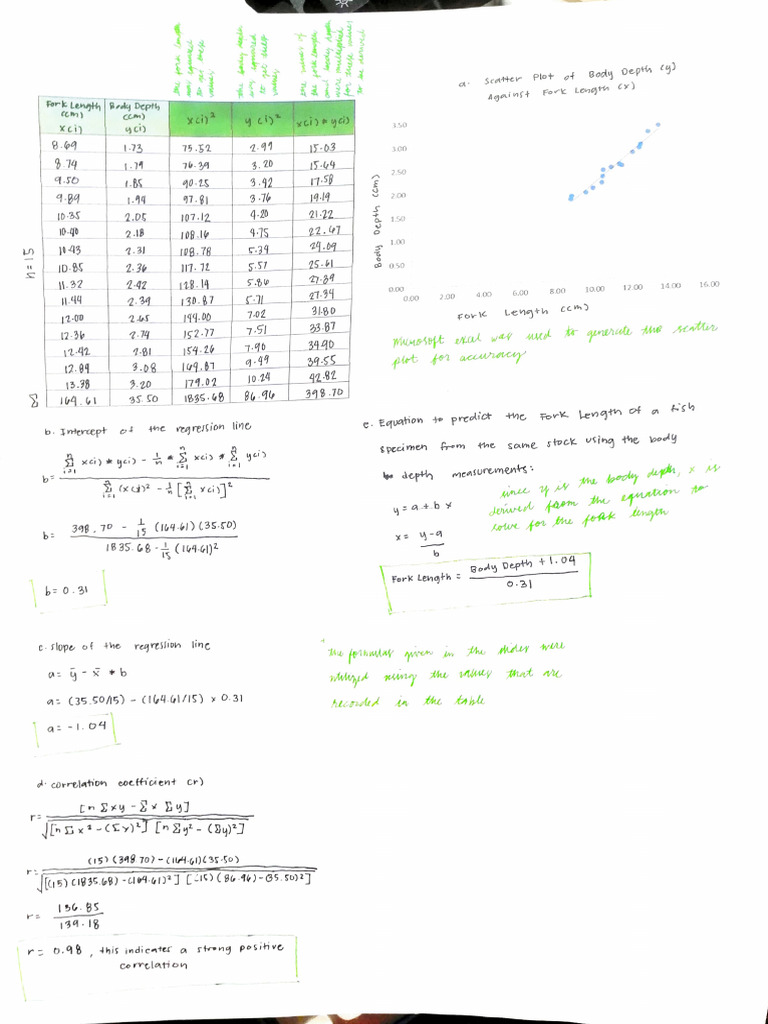 the fork length
was squared
to get these
values
the body depth
was squared
to get such
values
the values of
the fork length
and body depth
were multiplied
for these values
to be derived
Fork Length (cm) x(i) Body Depth (cm) y(i) x(i)² y(i)² x(i)*y(i)
8.69 1.73 75.52 2.99 15.03
8.74 1.79 76.39 3.20 15.64
9.50 1.85 90.25 3.42 17.58
9.89 1.94 97.81 3.76 19.19
10.35 2.05 107.12 4.20 21.22
10.40 2.18 108.16 4.75 22.67
10.43 2.31 108.78 5.34 24.09
10.85 2.36 117.72 5.57 25.61
11.32 2.42 128.14 5.86 27.39
11.44 2.39 130.87 5.71 27.34
12.00 2.65 144.00 7.02 31.80
12.36 2.74 152.77 7.51 33.87
12.42 2.81 154.26 7.90 34.90
12.84 3.08 164.87 9.49 39.55
13.38 3.20 179.02 10.24 42.82
Σ 164.61 35.50 1835.68 86.96 398.70
n=15
a. Scatter Plot of Body Depth (y)
Against Fork Length (x)
3.50
3.00
2.50
2.00
1.50
1.00
0.50
0.00
Body Depth (cm)
0.00 2.00 4.00 6.00 8.00 10.00 12.00 14.00 16.00
Fork Length (cm)
Microsoft excel was used to generate this scatter
plot for accuracy
b. Intercept of the regression line
b= Σ x(i) * y(i) - 1/n * Σ x(i) * Σ y(i)
Σ (x(i)² - 1/n [Σ x(i)]²
b= 398.70 - 1/15 (164.61)(35.50)
1835.68 - 1/15 (164.61)²
b= 0.31
c. slope of the regression line
a= ȳ - x̄ * b
a= (35.50/15) - (164.61/15) x 0.31
a= -1.04
d. correlation coefficient (r)
r= [n Σxy - Σx Σy]
√[n Σx² - (Σx)²] [n Σy² - (Σy)²]
r= (15)(398.70) - (164.61)(35.50)
√[(15)(1835.68) - (164.61)²] [(15)(86.96) - (35.50)²]
r= 136.85
139.18
r= 0.98, this indicates a strong positive
correlation
e. Equation to predict the Fork Length of a fish
specimen from the same stock using the body
depth measurements:
y= a + b x
x= y-a
b
since y is the body depth, x is
derived from the equation to
solve for the fork length
Fork Length = Body Depth + 1.04
0.31
* the formulas given in the slides were
utilized using the values that are
recorded in the table